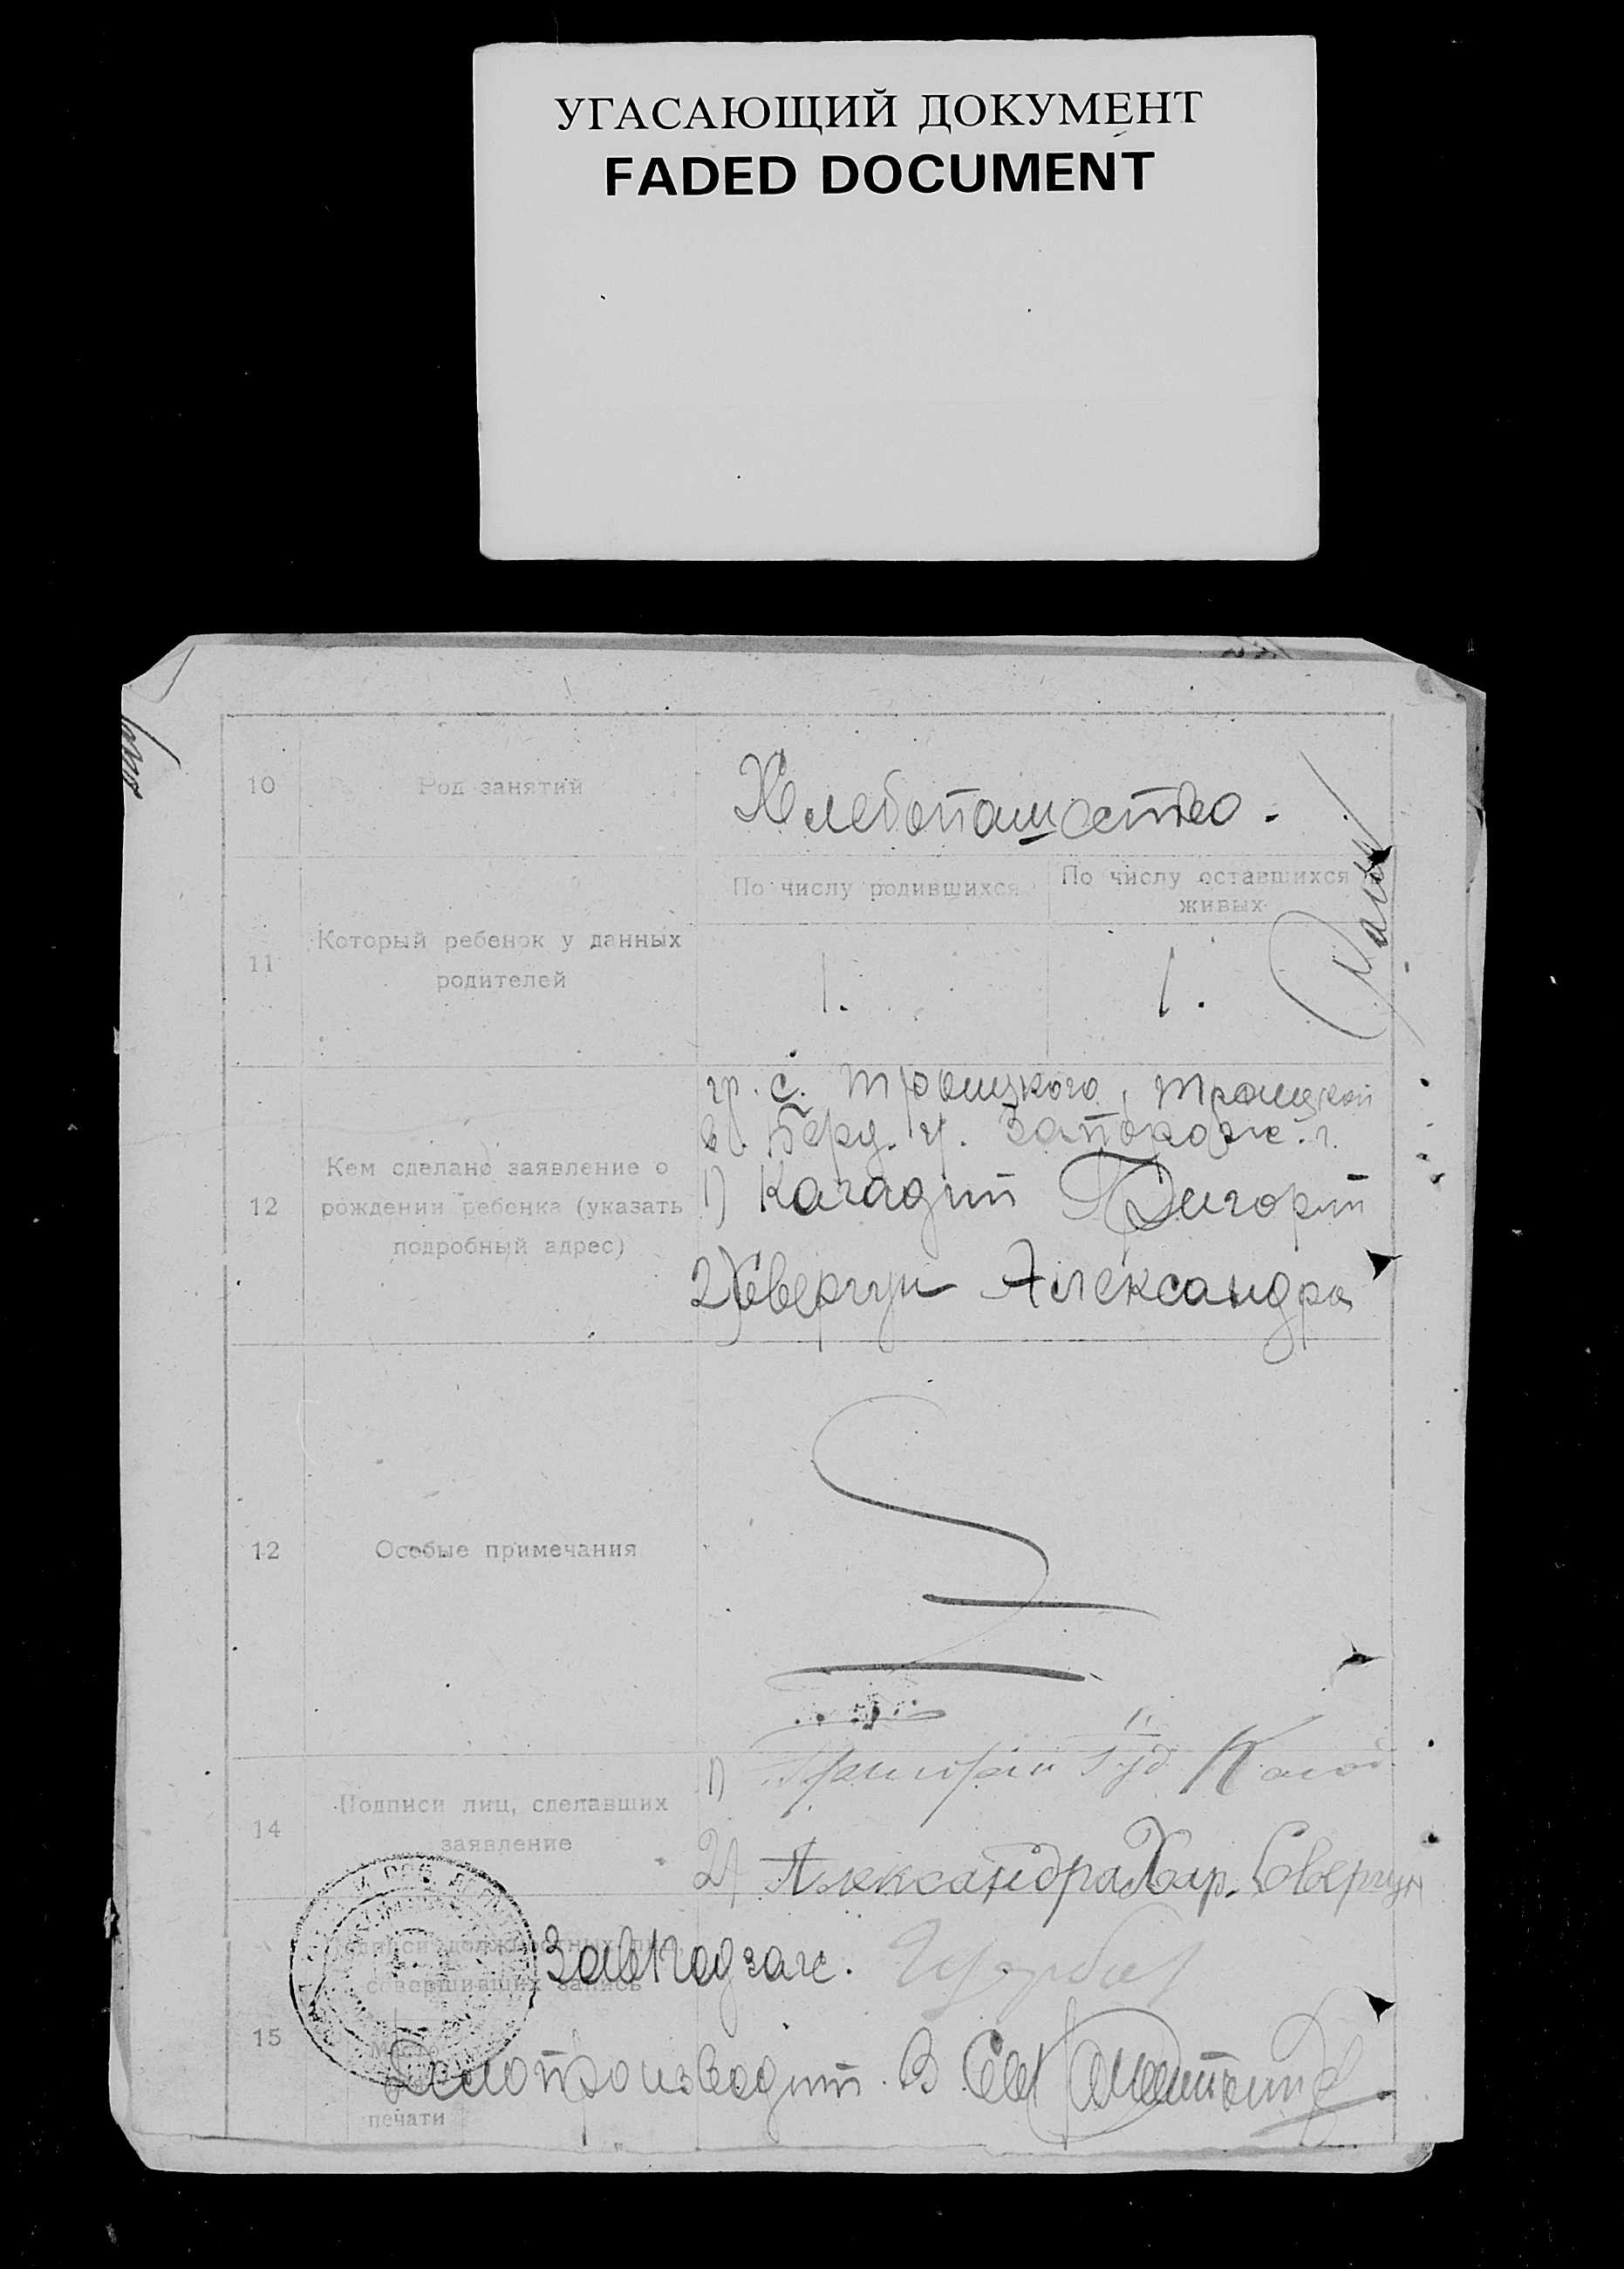 УГАСАЮЩИЙ ДОКУМЕНТ
FADED DOCUMENT
10 Род занятий Хлебопашество.
11 Который ребенок у данных родителей
По числу родившихся
По числу оставшихся живых
1. 1.
12 Кем сделано заявление о
рождении ребенка (указать
подробный адрес)
гр. с. Троицкого, Троицкой
в. Берд. у. Запорож. г.
1) Григорий
2) Сверчун Александра
12 Особые примечания
14 Подписи лиц, сделавших
заявление
1) Григорий
2) Александра Хар. Сверчун
15 Подписи должностных лиц,
совершивших запись
Завподзагс.
Место
Делопроизводит.
печати